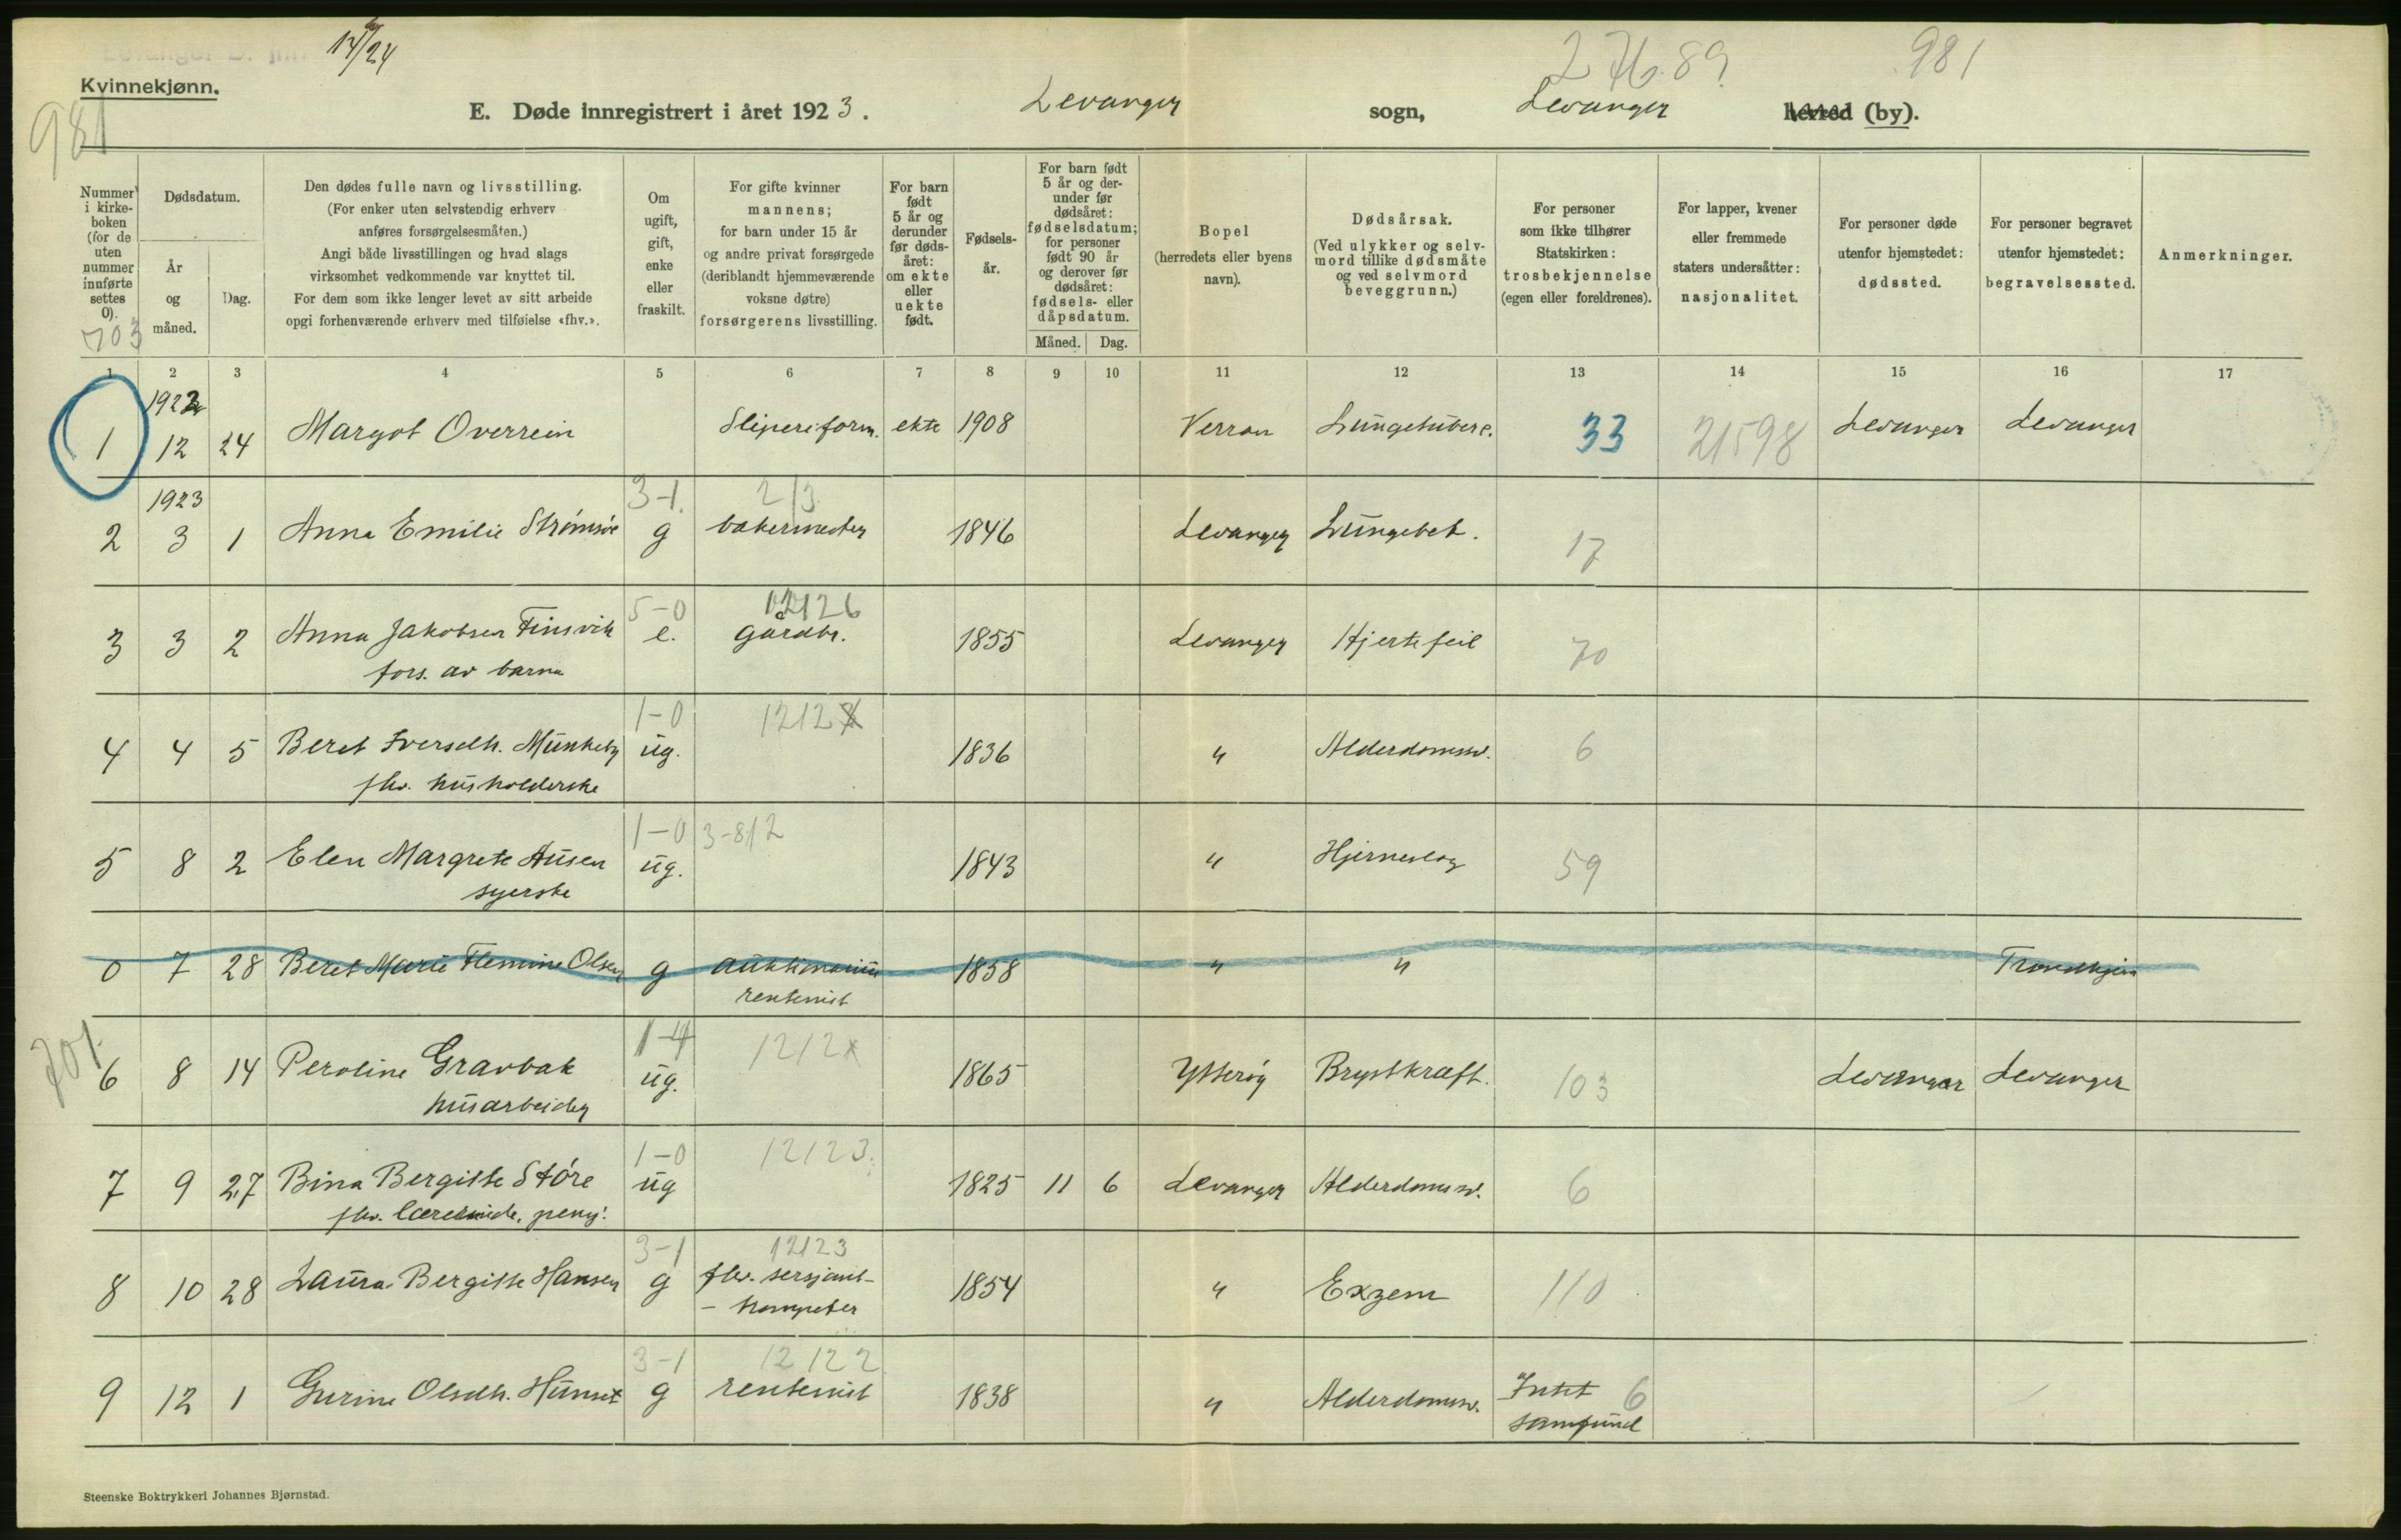 14/6 24
2 76.89
981
Kvinnekjønn.
981
E. Døde innregistrert i året 1923. Levanger sogn, Levanger herred (by).
Nummer i kirkeboken (for de uten nummer innførte settes 0).
703
Dødsdatum.
År og måned.
Dag.
Den dødes fulle navn og livsstilling.
(For enker uten selvstendig erhverv
anføres forsørgelsesmåten.)
Angi både livsstillingen og hvad slags
virksomhet vedkommende var knyttet til.
For dem som ikke lenger levet av sitt arbeide
opgi forhenværende erhverv med tilføielse «fhv.».
Om ugift, gift, enke eller fraskilt.
For gifte kvinner
mannens;
for barn under 15 år
og andre privat forsørgede
(deriblandt hjemmeværende
voksne døtre)
forsørgerens livsstilling.
For barn født 5 år og derunder før dødsåret: om ekte eller uekte født.
Fødselsår.
For barn født 5 år og derunder før dødsåret: fødselsdatum; for personer født 90 år og derover før dødsåret: fødsels- eller dåpsdatum.
Måned. Dag.
Bopel
(herredets eller byens
navn).
Dødsårsak.
(Ved ulykker og selvmord tillike dødsmåte og ved selvmord beveggrunn.)
For personer
som ikke tilhører
Statskirken:
trosbekjennelse
(egen eller foreldrenes).
For lapper, kvener
eller fremmede
staters undersåtter:
nasjonalitet.
For personer døde
utenfor hjemstedet:
dødssted.
For personer begravet
utenfor hjemstedet:
begravelsessted.
Anmerkninger.
1 2 3 4 5 6 7 8 9 10 11 12 13 14 15 16 17
1922
1 12 24 Margot Overrein Sliperiform. ekte 1908 Verran Lungetuberc. 33 21598 Levanger Levanger
1923 3-1 213
2 3 1 Anna Emilie Strømsøe g bakermester 1846 Levanger Lungebet. 17
5-0 12126
3 3 2 Anna Jakobsen Finsvik e. Gårdbr. 1855 Levanger Hjertefeil 70
fors. av barna
1-0 1212X
4 4 5 Beret Iversdtr. Munkeby ug. 1836 " Alderdomssv. 6
fhv. husholderske
1-0 3-812
5 8 2 Elen Margrete Ausen ug. 1843 " Hjerneslag 59
syerske
0 7 28 Beret Marie Flemine Olsen g 1858 " " Trondhjem
rentenist
701.
1-4 1212x
6 8 14 Peroline Gravbak ug. 1865 Ytterøy Brystkræft. 103 Levanger Levanger
husarbeider
1-0 12123.
7 9 27 Bina Bergitte Støre ug 1825 11 6 Levanger Alderdomssv. 6
fhv. lærerinde, pensj.
3-1 12123
8 10 28 Laura Bergitte Hansen g fhv. sersjant- 1854 " Exzem 110
- trompeter
3-1 12122
9 12 1 Gurine Olsdtr. Munset g rentenist 1838 " Alderdomssv. Intet 6
samfund
Steenske Boktrykkeri Johannes Bjørnstad.